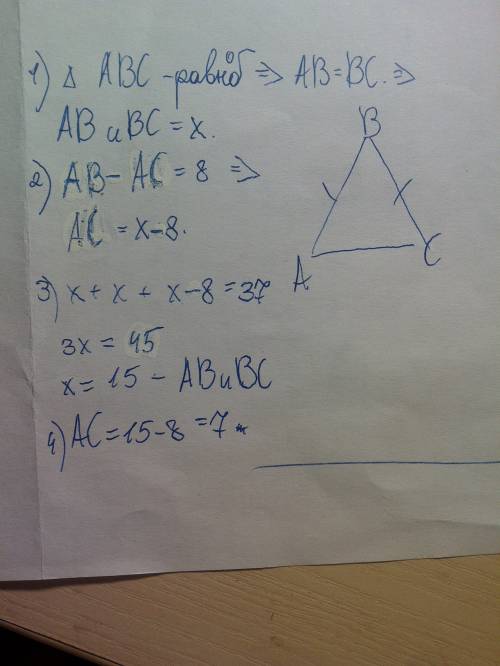 1) Δ ABC - равноб => AB=BC. =>
AB и BC = x.
2) AB - AC = 8 =>
AC = x-8.
3) x + x + x-8 = 37
3x = 45
x = 15 - AB и BC
4) AC = 15-8 = 7 м
B
A
C